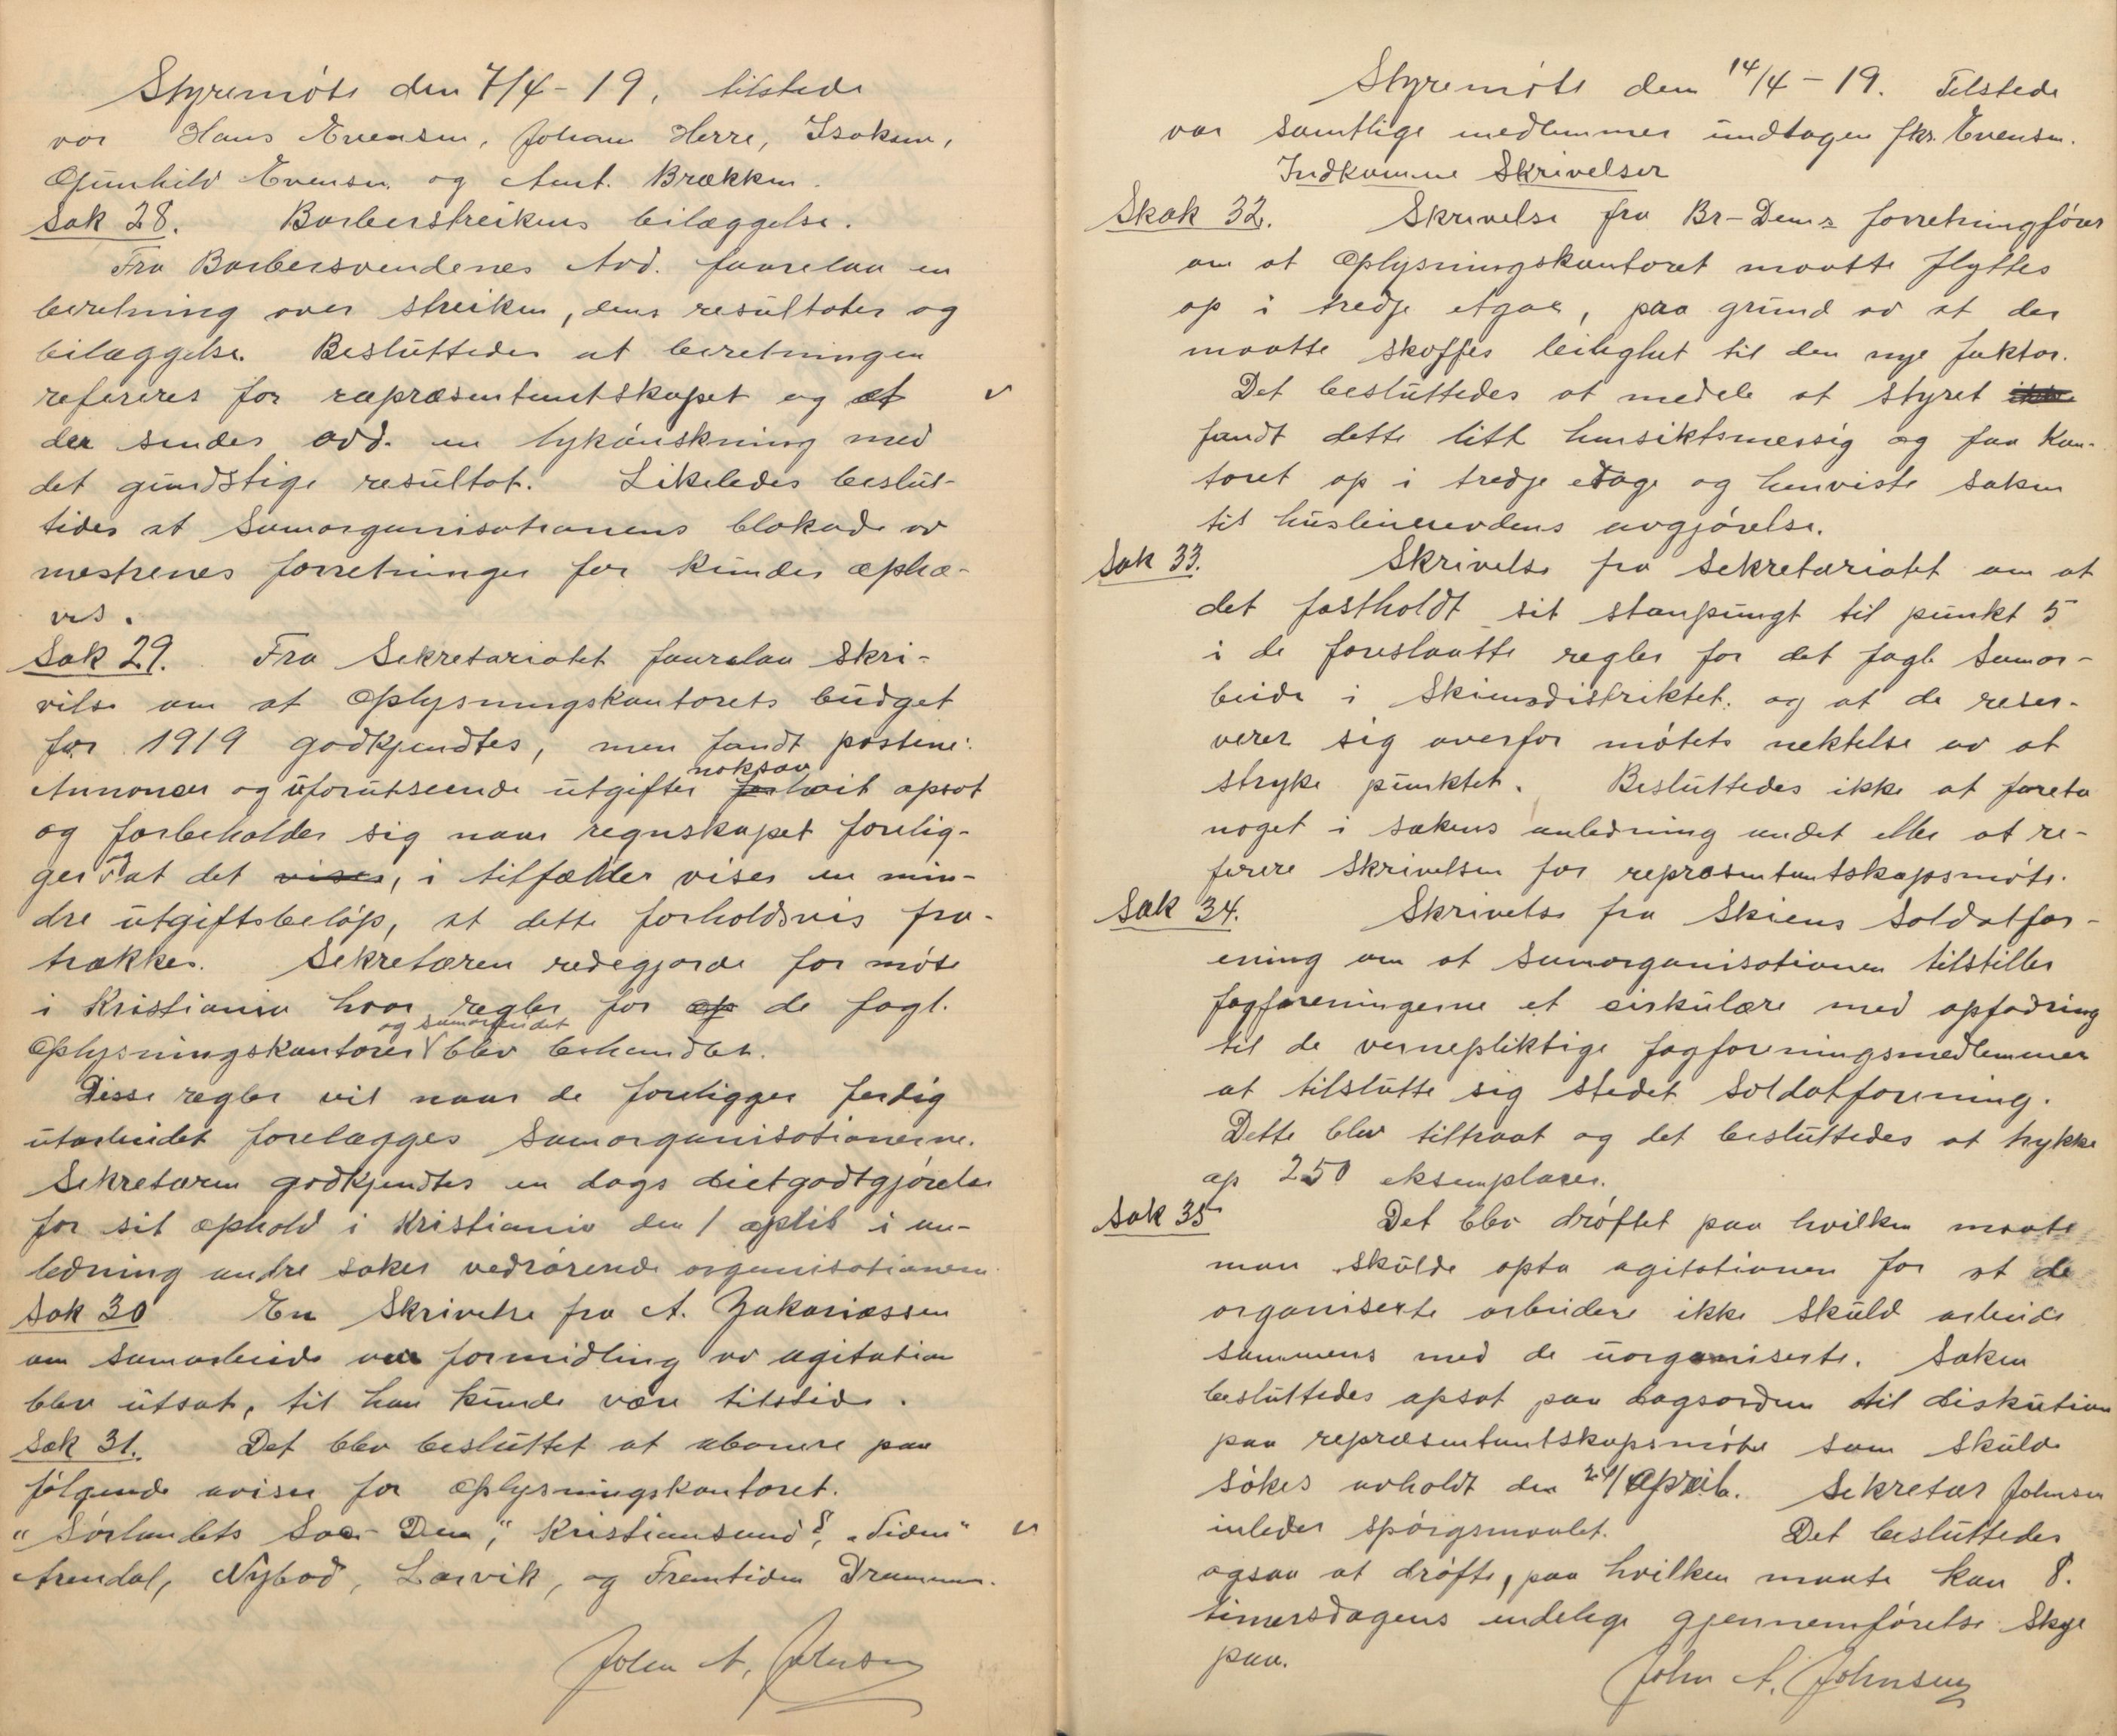 Styremöte den 7/4-19. tilstede
var Hans Evensen, Johan Herre, Isaksen,
Gunhild Evensen. og Amt. Brækken.
Sak 28. Barberstreikens bilæggelse.
Fra Barbersvendenes Avd. faarelaa en
beretning over streiken, dens resultater og
bilæggelse. Besluttedes at beretningen
refereres for repræsentantskapet og at
der sendes avd. en lykönskning med
det gundstige resultat. Likeledes beslut-
tides at Samorganisationens blokade av
mestrenes forretninger for kunder ophæ-
ves.
Sak 29. Fra Sekretariatet faarelaa skri-
velse om at Oplysningskontorets budget
for 1919 godkjendtes, men fandt postene:
noksaa
Annoncer og uforutseende utgifter for höit opsat
og forbeholder sig naar regnskapet forelig-
ger at det viser, i tilfælder viser en min-
dre utgiftsbelöp, at dette forholdsvis fra-
trækkes. Sekretæren redegjorde for möte
i Kristiania hvor regler for op de fagl.
og samarbeidet
Oplysningskontorer blev behandlet.
Disse regler vil naar de foreligger ferdig
utarbeidet forelægges Samorganisationerne.
Sekretæren godkjendtes en dags dietgodtgjörelse
for sit ophold i Kristiania den 1 april i an-
ledning andre saker vedrörende organisationen.
Sak 30 En Skrivelse fra A. Zakariassen
om samarbeide ved formidling av agitation
blev utsat, til han kunde være tilstede.
Sak 31. Det blev besluttet at abonere paa
fölgende aviser for Oplysningskontoret.
"Sörlandets Soc-Dem", Kristiansand S, "Tiden"
Arendal, Nybrod, Larvik, og Fremtiden Drammen.
John A. Johnsen
Styremöte den 14/4-19. Tilstede
var samtlige medlemmer undtagen fkr. Evensen.
Indkomne Skrivelser
Skak 32. Skrivelse fra Br-Dem's forretningförer
om at Oplysningskontoret maatte flyttes
op i tredje etgae, paa grund av at der
maatte skaffes leilighet til den nye faktor.
Det besluttedes at medele at styret ikke
fandt dette litt hensiktsmessig og faa Kon-
toret op i tredje etage og henviste saken
til huslinenevdens avgjörelse.
Sak 33. Skrivelse fra Sekretariatet om at
det fastholdt sit stanpungt til punkt 5
i de foreslaatte regler for det fagl. Samar-
beide i Skiensdistriktet. og at de reser-
verer sig overfor mötets nektelse av at
stryke punktet. Besluttedes ikke at foreta
noget i sakens anledning andet eller at re-
ferere Skrivelsen for repræsentantskapsmöte.
Sak 34. Skrivelse fra Skiens Soldatfor-
ening om at Samorganisationen tilstiller
fagforeningerne et cirkulære med opfodring
til de vernepliktige fagforeningsmedlemmer
at tilslutte sig stedet Soldatforening.
Dette blev tiltraat og det besluttedes at trykke
op 250 eksemplarer.
Sak 35 Det blev dröftet paa hvilken maate
man skulde opta agitationen for at de
organiserte arbeidere ikke skuld arbeide
sammens med de uorganiserte. Saken
besluttedes opsat paa dagsorden til diskution
paa repræsentantskapsmötet som skulde
sökes avholdt den 24/April. Sekretær Johnsen
inleder spörgsmaalet. Det besluttedes
ogsaa at dröfte, paa hvilken maate kan 8.
timersdagens endelige gjennemförelse skje
paa.
John A. Johnsen